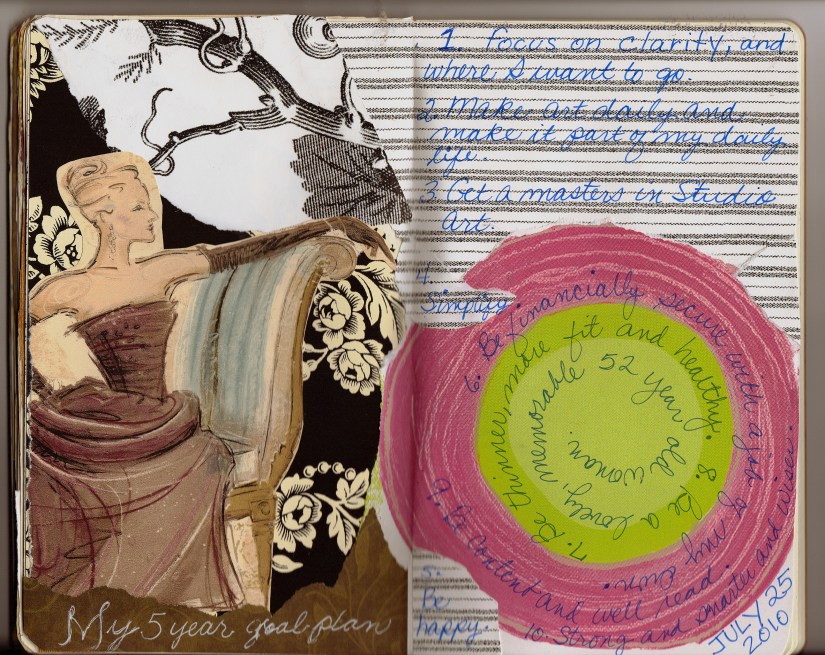 My 5 year goal plan
1. Focus on clarity, and
where I want to go.
2. Make art daily and
make it part of my daily
life.
3. Get a masters in Studio
art.
4.
Simplify
5.
Be
happy.
6. Be financially secure with a job of my own.
7. Be thinner, more fit and healthy.
8. Be a lovely, memorable 52 year old woman.
9. Be content and well read.
10 Strong and smarter and wiser.
JULY 25
2010